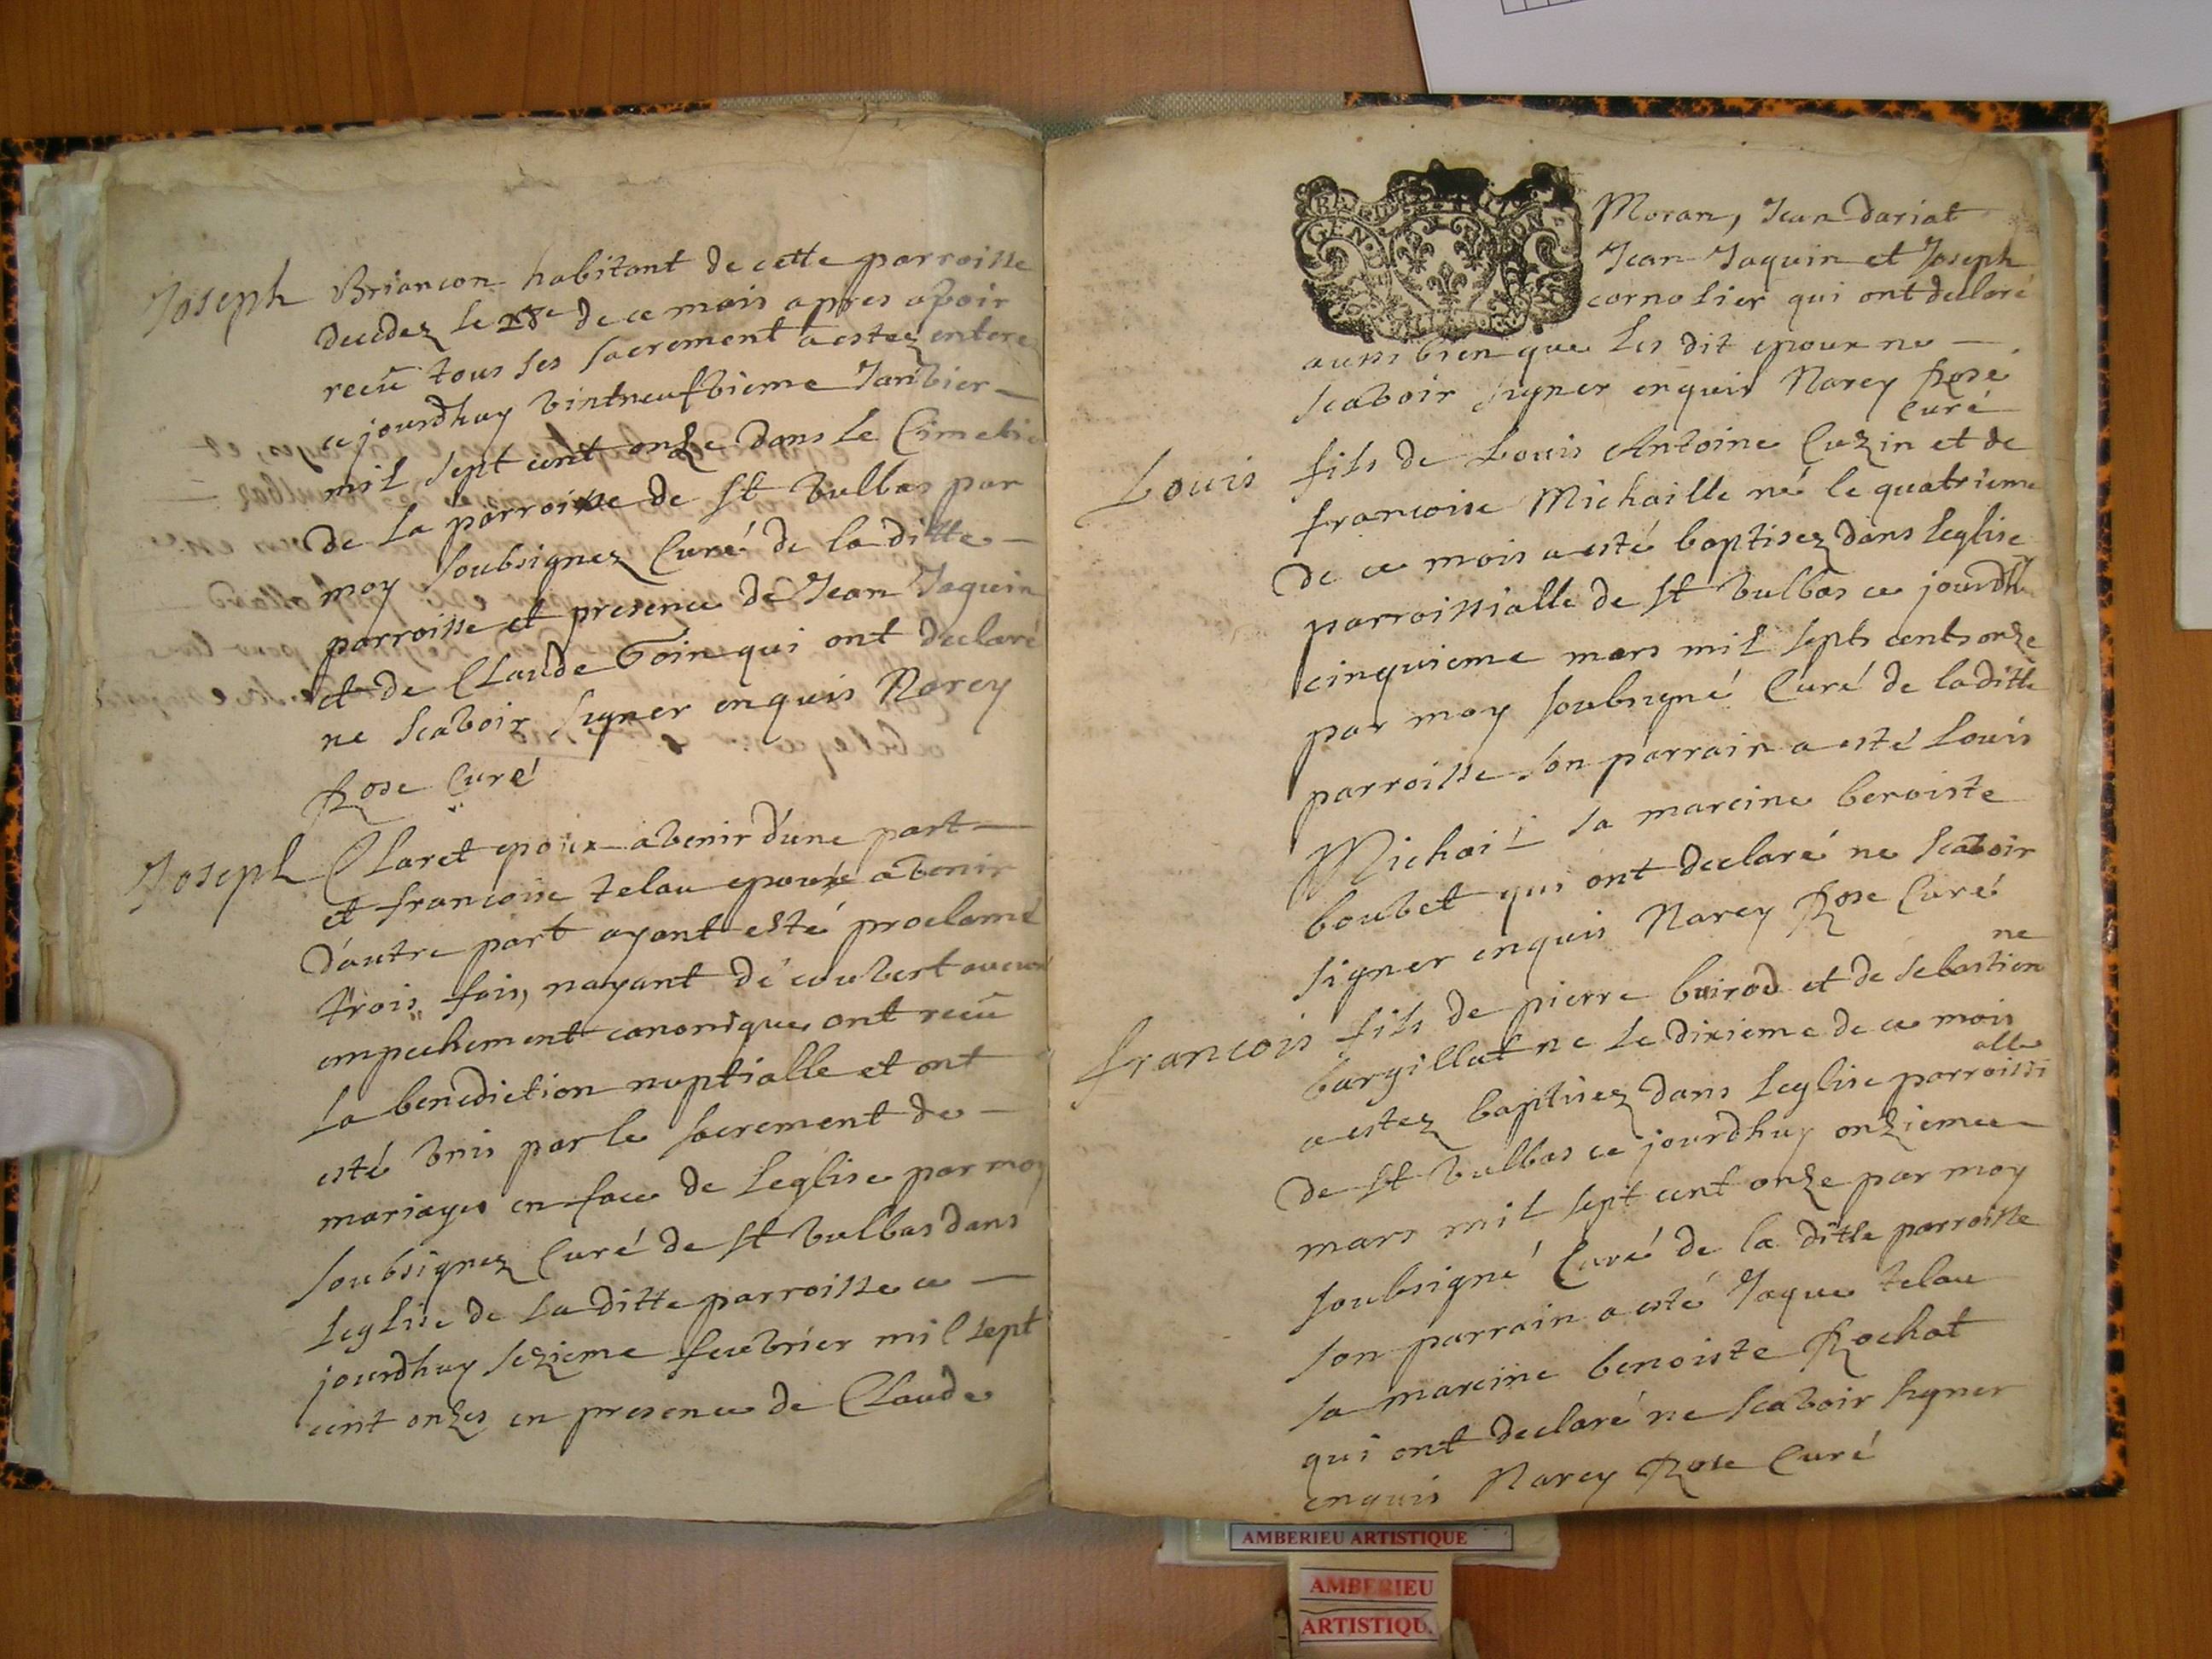 Joseph Briancon habitant de cette parroisse
decedez le 28e de ce mois apres avoir
recu tous ses sacrement a estez enteré
ce jourdhuy vintneufvieme Janvier
mil sept cent onze dans le Cimetie
de la parroisse de St Vulbas par
moy soubsignez Curé de la ditte
parroisse et presence de Jean Jaquin
et de Claude Goin qui ont declaré
ne scavoir signer enquis Narcy
Rose Curé
Joseph Claret epoux avenir d'une part
et francoise telau epouse avenir
d'autre part ayant esté proclamé
trois fois, nayant découvert aucun
empechement canonique ont recu
la benediction nuptialle et ont
esté unis par le sacrement de
mariage en face de leglise par moy
soubsignez Curé de St Vulbas dans
leglise de la ditte parroisse ce
jourdhuy sezieme feuvrier mil sept
cent onzes en presence de Claude
GEN
Moran, Jean dariat
Jean Jaquin et Joseph
cornolier qui ont declaré
aussi bien que les dit epoux ne
scavoir signer enquis Narcy Rose
Curé
Louis fils de Louis Antoine Cuzin et de
francoise Michaille né le quatrieme
de ce mois a esté baptisez dans leglise
parroissialle de St Vulbas ce jourdhuy
cinquieme mars mil septs cents onze
par moy soubsigné Curé de la ditte
parroisse son parrain a esté Louis
Michail sa mareine benoiste
bouvet qui ont declaré ne scavoir
signer enquis Narcy Rose Curé
ne
francois fils de pierre boirod et de sebastien
bargillat ne le dixieme de ce mois
alle
a estez baptisez dans leglise parroissi
de St Vulbas ce jourdhuy onzieme
mars mil sept cent onze par moy
soubsigné Curé de la ditte parroisse
son parrain a esté Jaque telau
sa mareine benoiste Rochat
qui ont declaré ne scavoir signer
enquis Narcy Rose Curé
AMBERIEU ARTISTIQUE
AMBERIEU
ARTISTIQU